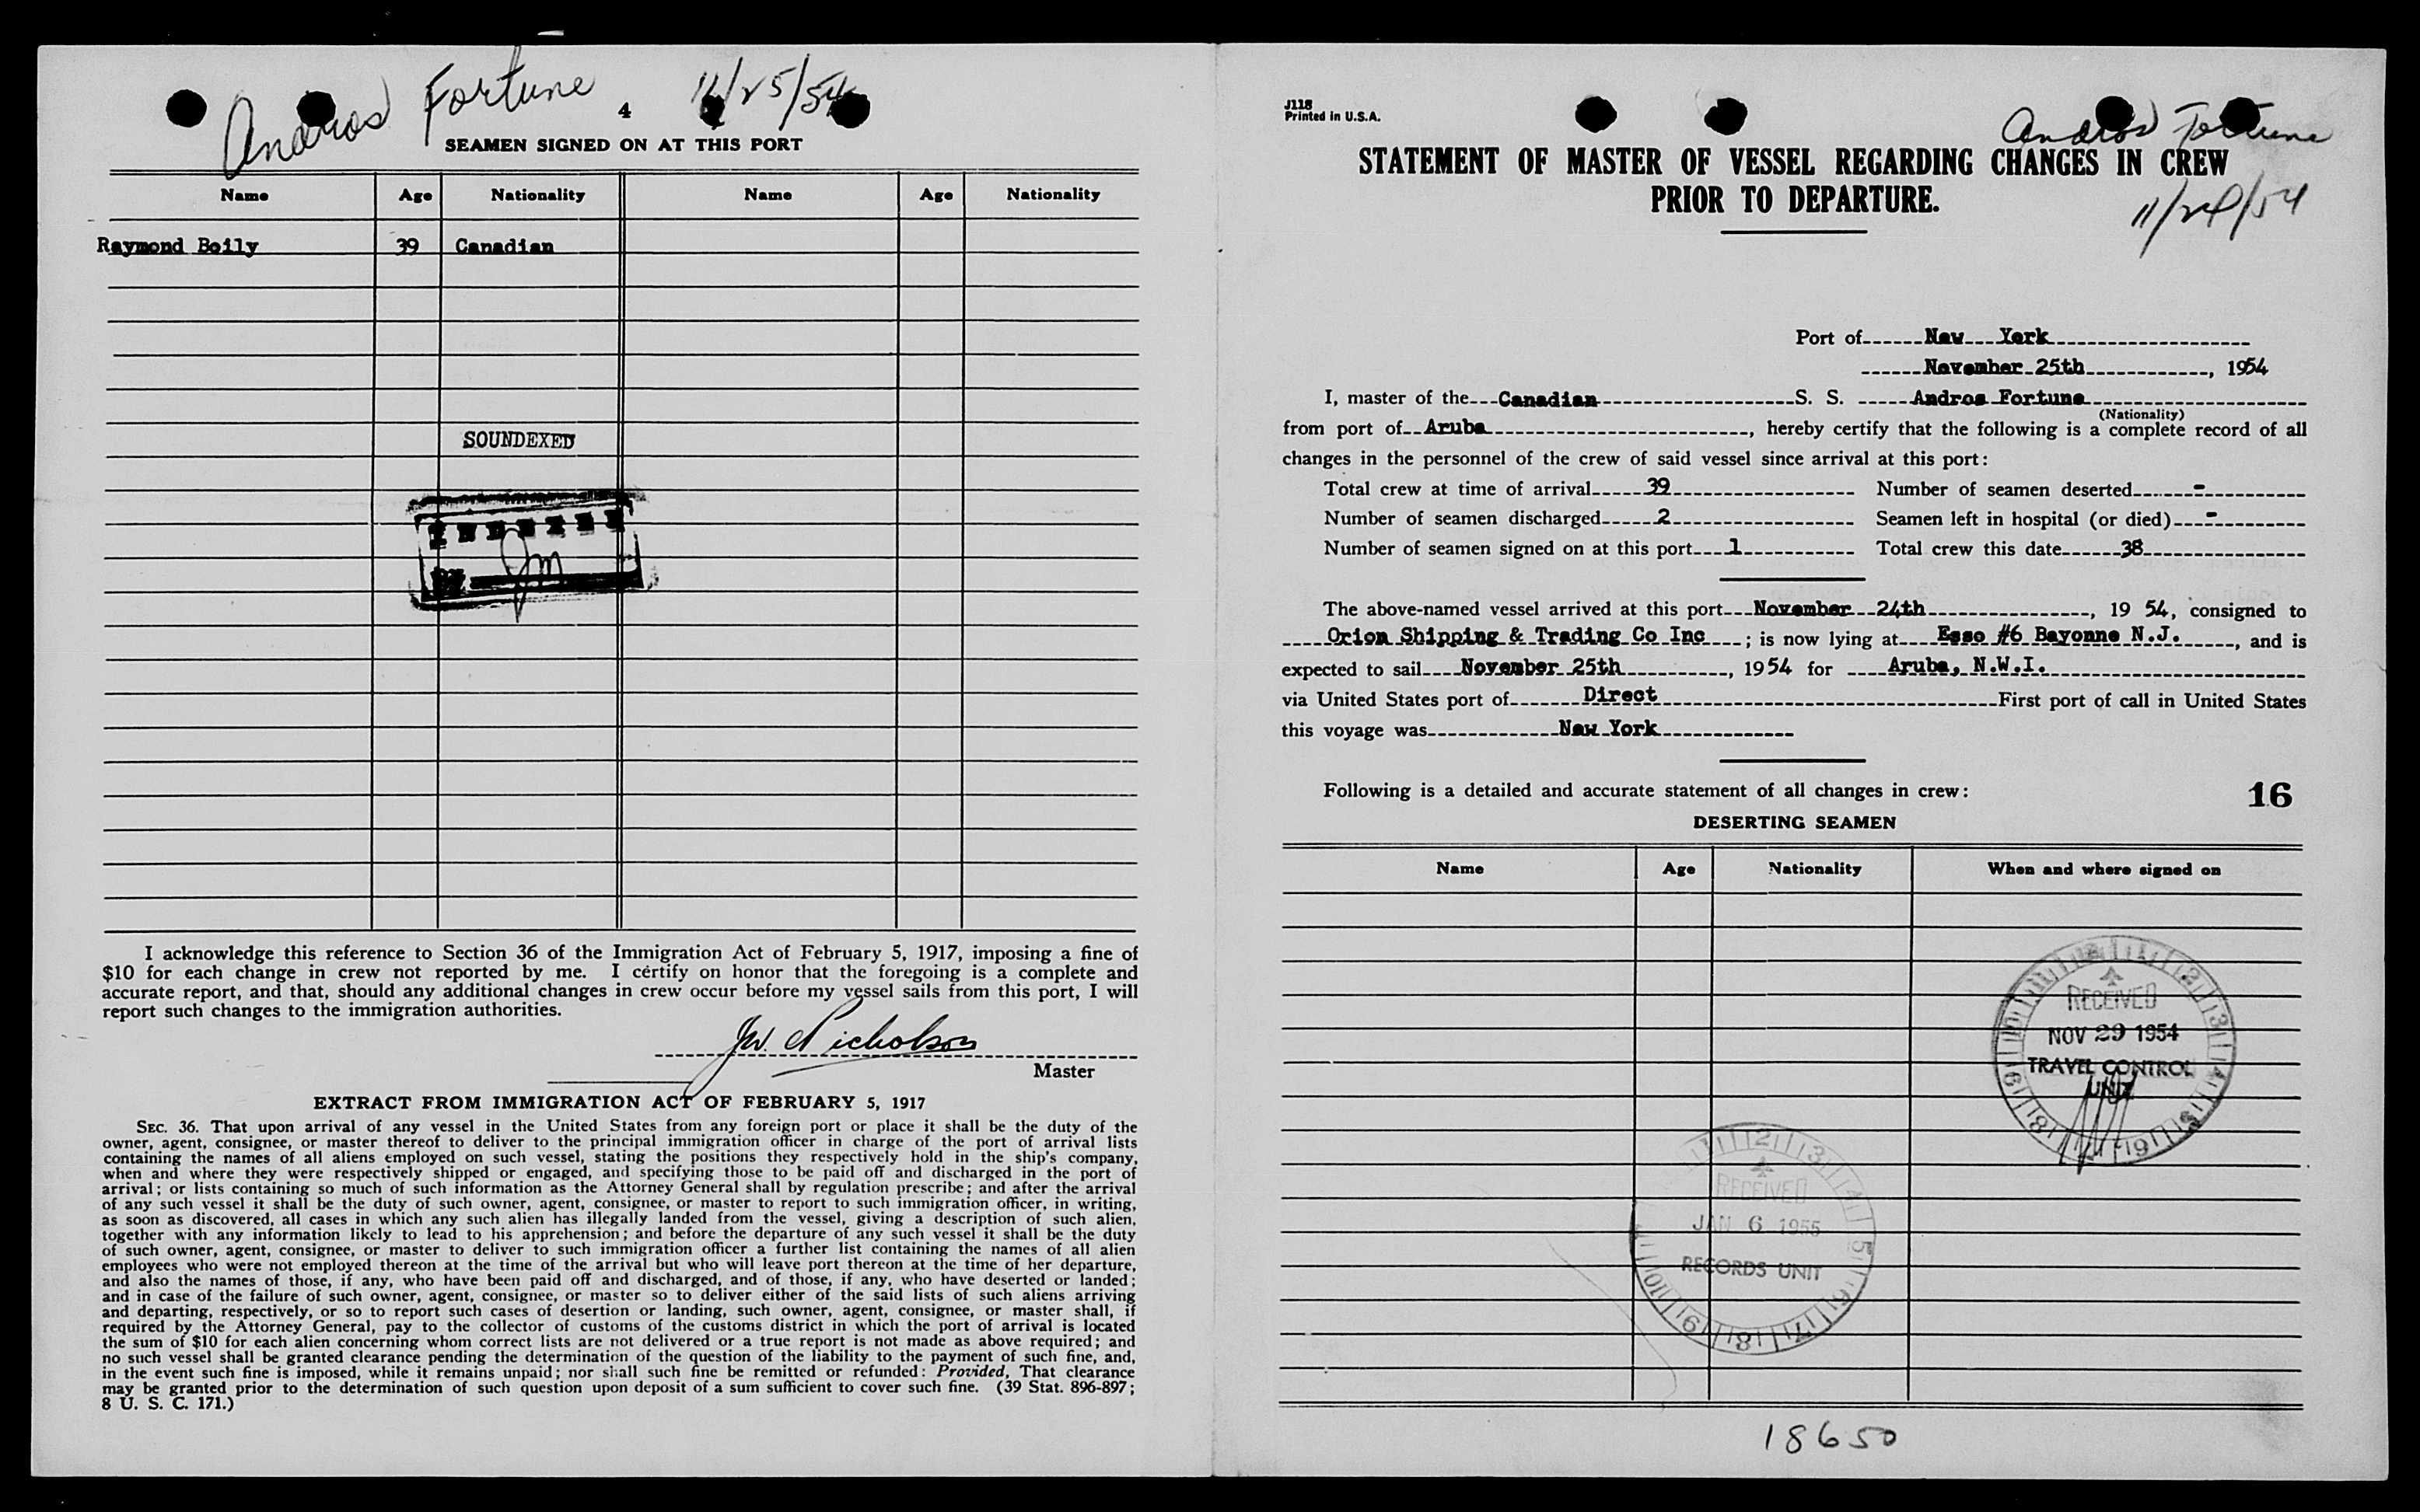 Andros Fortune 4 11/25/54
SEAMEN SIGNED ON AT THIS PORT
Name Age Nationality Name Age Nationality
Raymond Boily 39 Canadian
SOUNDEXED
INDEXED
BY
I acknowledge this reference to Section 36 of the Immigration Act of February 5, 1917, imposing a fine of
$10 for each change in crew not reported by me. I certify on honor that the foregoing is a complete and
accurate report, and that, should any additional changes in crew occur before my vessel sails from this port, I will
report such changes to the immigration authorities.
JW Nicholson
Master
EXTRACT FROM IMMIGRATION ACT OF FEBRUARY 5, 1917
SEC. 36. That upon arrival of any vessel in the United States from any foreign port or place it shall be the duty of the
owner, agent, consignee, or master thereof to deliver to the principal immigration officer in charge of the port of arrival lists
containing the names of all aliens employed on such vessel, stating the positions they respectively hold in the ship's company,
when and where they were respectively shipped or engaged, and specifying those to be paid off and discharged in the port of
arrival; or lists containing so much of such information as the Attorney General shall by regulation prescribe; and after the arrival
of any such vessel it shall be the duty of such owner, agent, consignee, or master to report to such immigration officer, in writing,
as soon as discovered, all cases in which any such alien has illegally landed from the vessel, giving a description of such alien,
together with any information likely to lead to his apprehension; and before the departure of any such vessel it shall be the duty
of such owner, agent, consignee, or master to deliver to such immigration officer a further list containing the names of all alien
employees who were not employed thereon at the time of the arrival but who will leave port thereon at the time of her departure,
and also the names of those, if any, who have been paid off and discharged, and of those, if any, who have deserted or landed;
and in case of the failure of such owner, agent, consignee, or master so to deliver either of the said lists of such aliens arriving
and departing, respectively, or so to report such cases of desertion or landing, such owner, agent, consignee, or master shall, if
required by the Attorney General, pay to the collector of customs of the customs district in which the port of arrival is located
the sum of $10 for each alien concerning whom correct lists are not delivered or a true report is not made as above required; and
no such vessel shall be granted clearance pending the determination of the question of the liability to the payment of such fine, and,
in the event such fine is imposed, while it remains unpaid; nor shall such fine be remitted or refunded: Provided, That clearance
may be granted prior to the determination of such question upon deposit of a sum sufficient to cover such fine. (39 Stat. 896-897;
8 U. S. C. 171.)
J118
Printed in U.S.A.
Andros Fortune
STATEMENT OF MASTER OF VESSEL REGARDING CHANGES IN CREW
PRIOR TO DEPARTURE.
11/24/54
Port of New York
November 25th, 1954
I, master of the Canadian S. S. Andros Fortune
(Nationality)
from port of Aruba, hereby certify that the following is a complete record of all
changes in the personnel of the crew of said vessel since arrival at this port:
Total crew at time of arrival 39 Number of seamen deserted -
Number of seamen discharged 2 Seamen left in hospital (or died) -
Number of seamen signed on at this port 1 Total crew this date 38
The above-named vessel arrived at this port November 24th, 19 54, consigned to
Orion Shipping & Trading Co Inc; is now lying at Esso #6 Bayonne N.J., and is
expected to sail November 25th, 1954 for Aruba, N.W.I.
via United States port of Direct First port of call in United States
this voyage was New York
Following is a detailed and accurate statement of all changes in crew: 16
DESERTING SEAMEN
Name Age Nationality When and where signed on
RECEIVED
NOV 29 1954
TRAVEL CONTROL
UNIT
RECEIVED
JAN 6 1955
RECORDS UNIT
18650